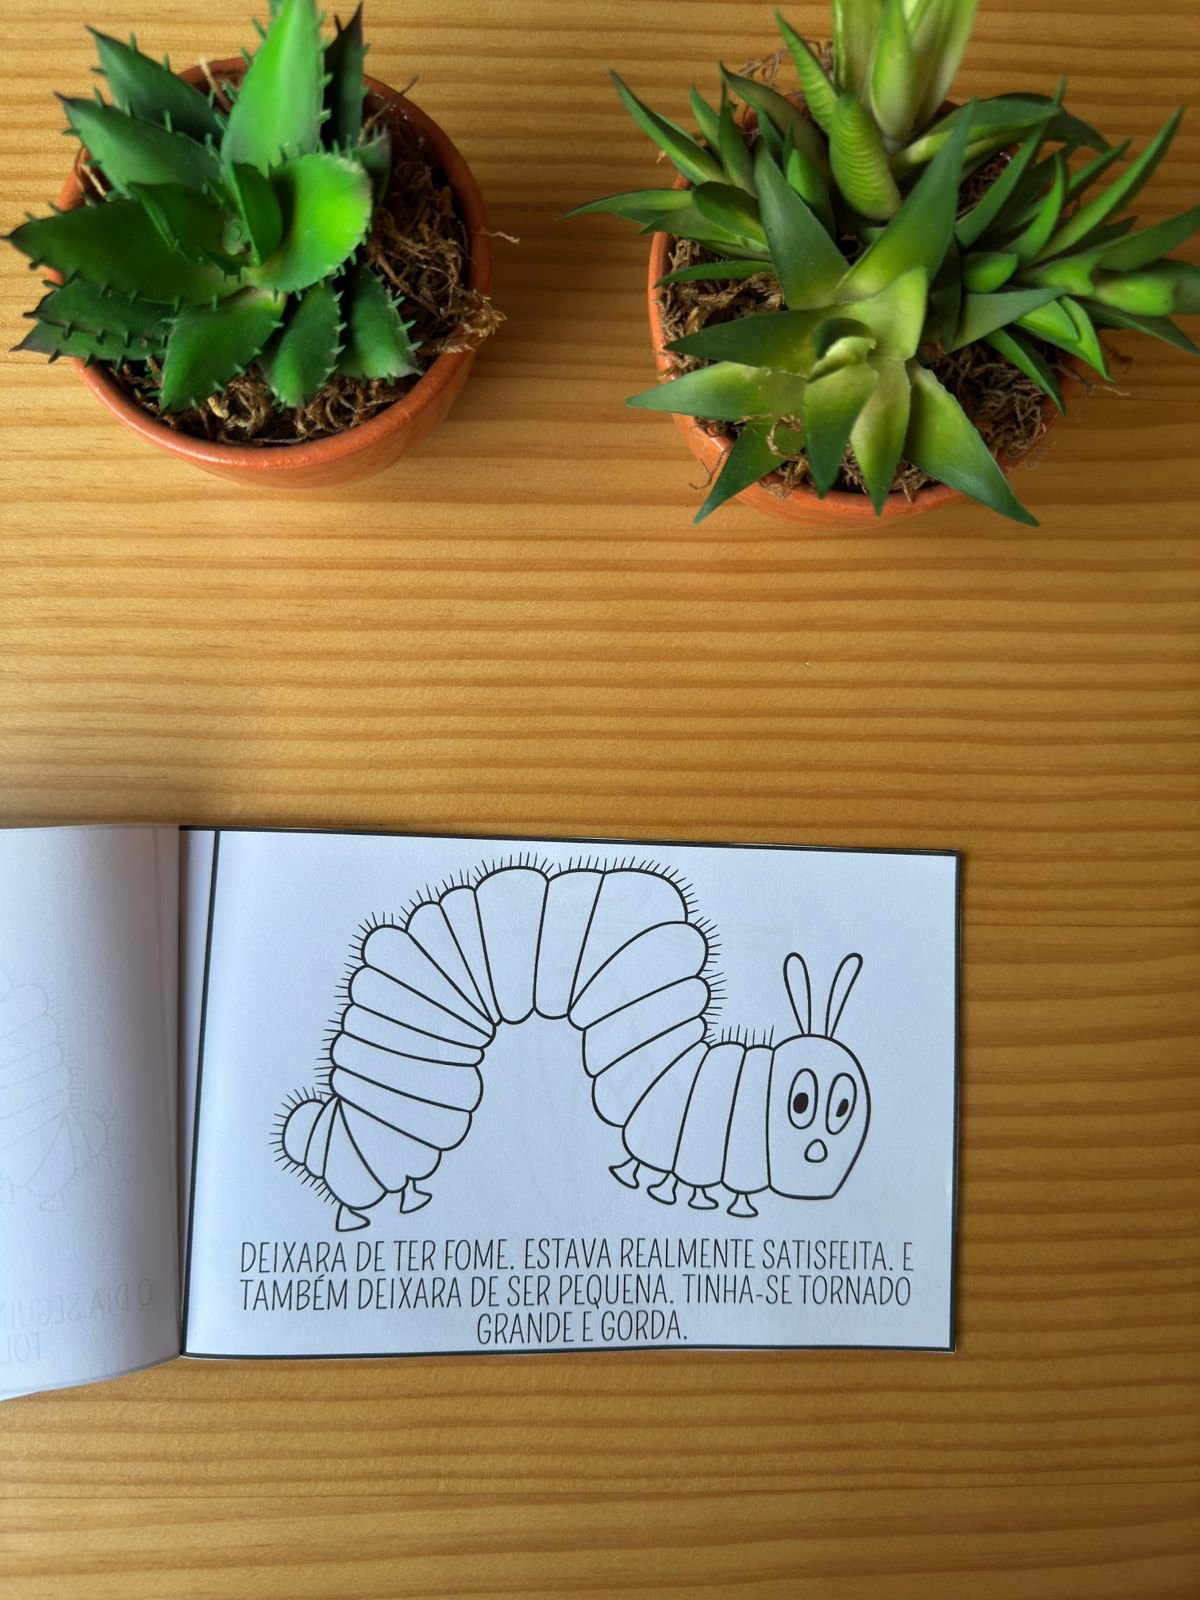 DEIXARA DE TER FOME. ESTAVA REALMENTE SATISFEITA. E
TAMBÉM DEIXARA DE SER PEQUENA. TINHA-SE TORNADO
GRANDE E GORDA.